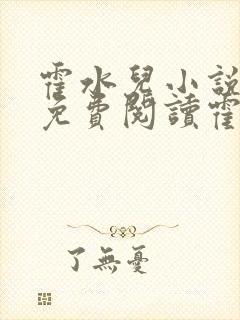 霍水兒小說
免費閱讀霍
了無憂